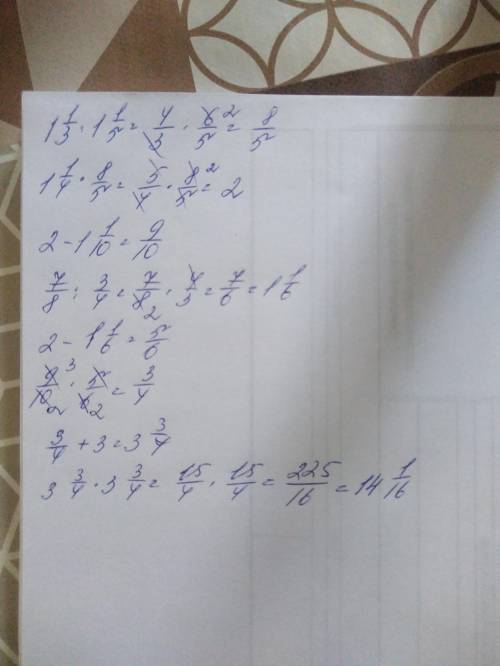 1 1/3 · 1 1/5 = 4/3 · 6/5 2 = 8/5
1 1/4 · 8/5 = 5/4 · 8/5 2 = 2
2 - 1 1/10 = 9/10
7/8 : 3/4 = 7/8 2 · 4/3 = 7/6 = 1 1/6
2 - 1 1/6 = 5/6
9/10 3 2 · 5/6 2 = 3/4
3/4 + 3 = 3 3/4
3 3/4 · 3 3/4 = 15/4 · 15/4 = 225/16 = 14 1/16